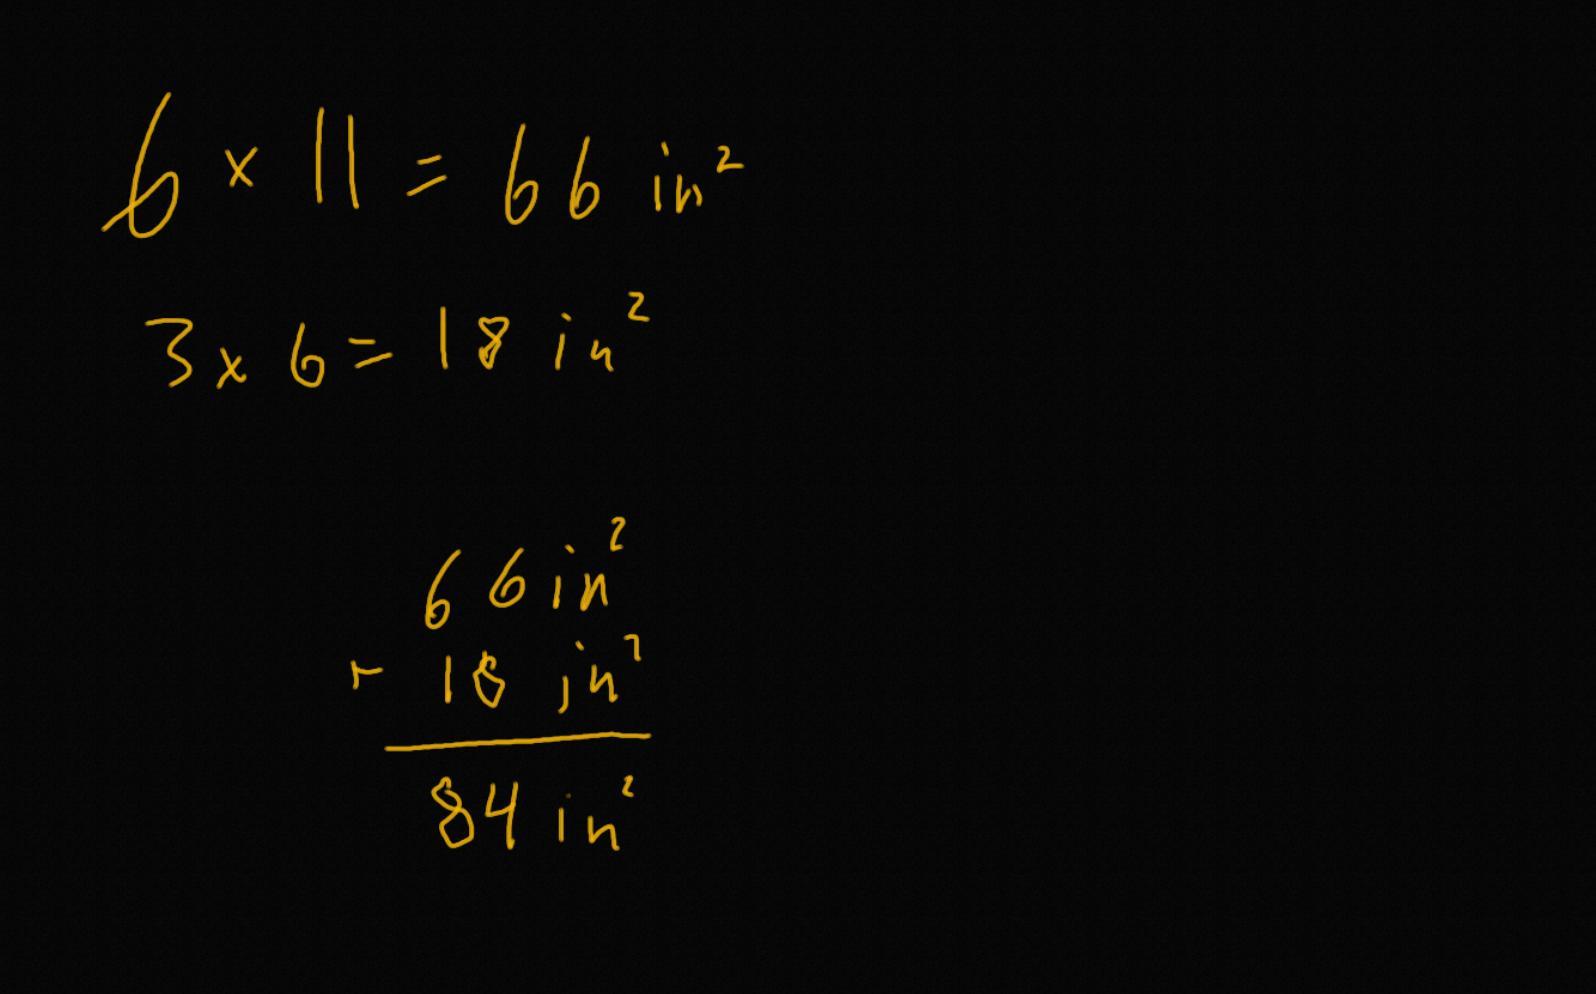 6 × 11 = 66 in²
3 × 6 = 18 in²
66 in²
+ 18 in²
84 in²